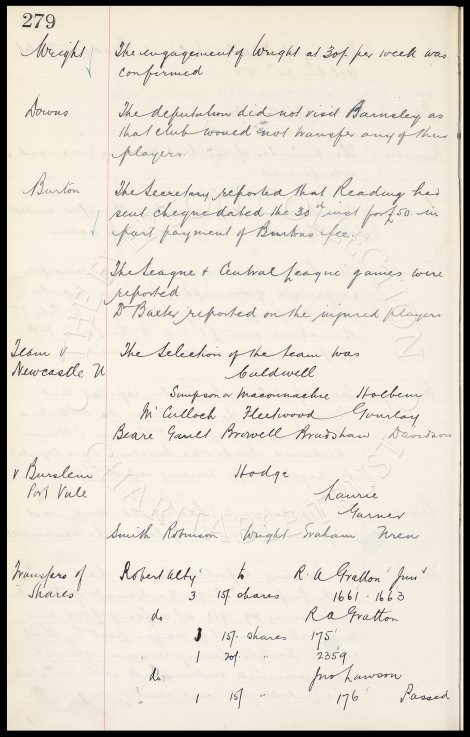 279
Wright The engagement of Wright at 30/- per week was
confirmed
Downs The deputation did not visit Barnsley as
that club would not transfer any of their
players.
Burton The Secretary reported that Reading had
sent cheque dated the 30th inst for £50 in
part payment of Burtons fee
The League & Central League games were
reported
Dr Baxter reported on the injured players
Team v The Selection of the team was
Newcastle U Caldwell
Simpson or Maconnachie Holbem
McCulloch Fleetwood Gourlay
Beare Gault Browell Bradshaw Davidson
v Burslem Hodge
Port Vale Laurie
Garner
Smith Robinson Wright Graham Wren
Transfers of Robert Alty to R. A Gratton Junr
Shares 3 15/- shares 1661-1663
do R A Gratton
1 15/- shares 175
1 20/- " 2359
do Jno Lawson
1 15/- " 176 Passed